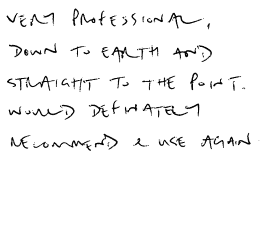 VERY PROFESSIONAL,
DOWN TO EARTH AND
STRAIGHT TO THE POINT.
WOULD DEFINATELY
RECOMMEND & USE AGAIN